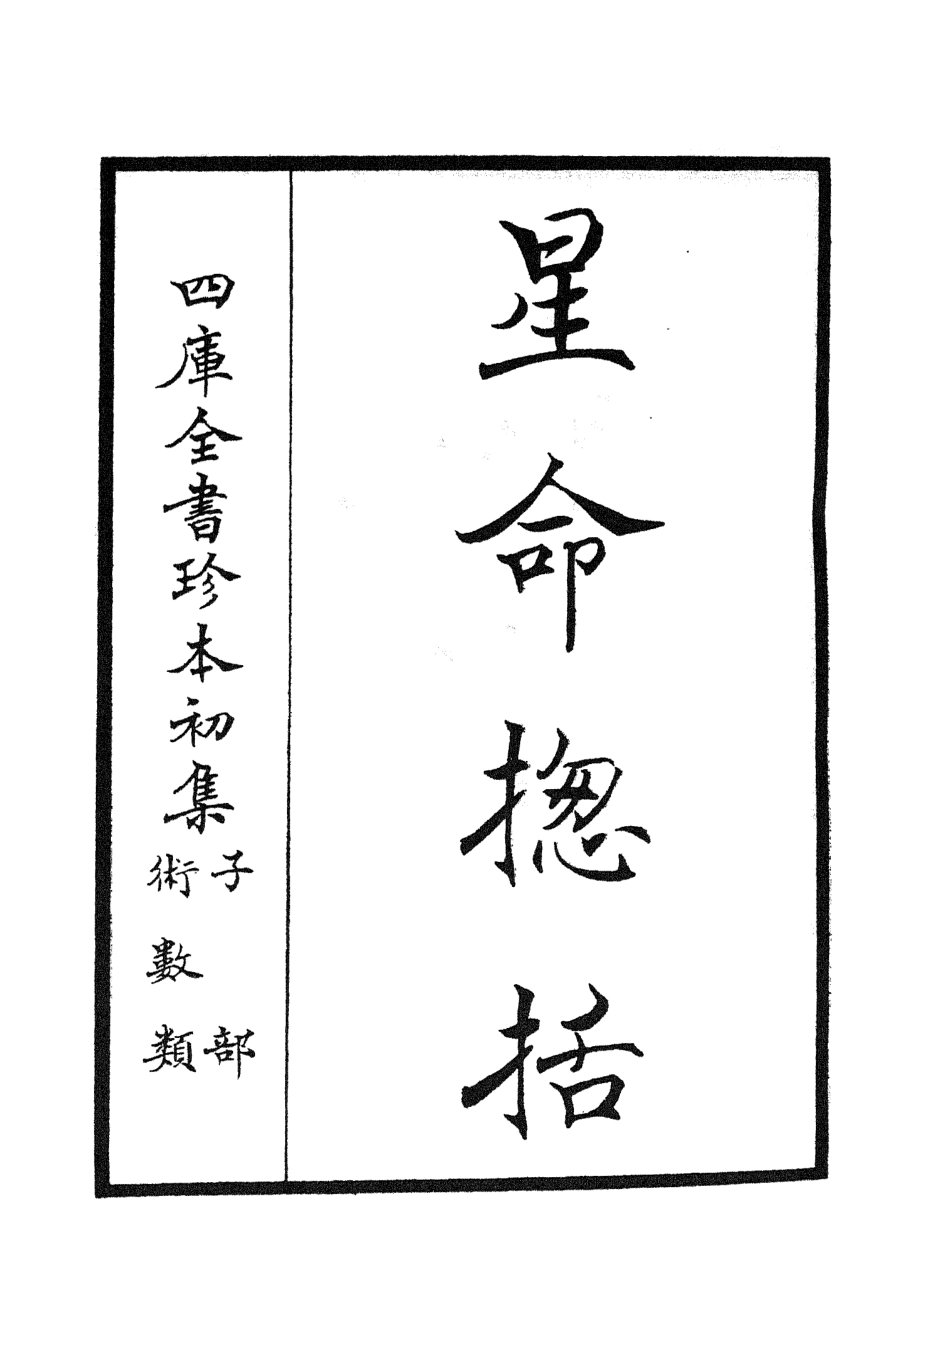 星命揔括
四庫全書珍本初集
子部
術數類